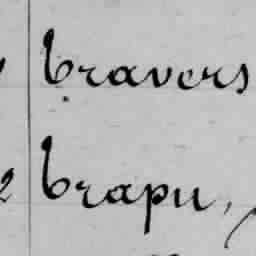 travers
trapu,